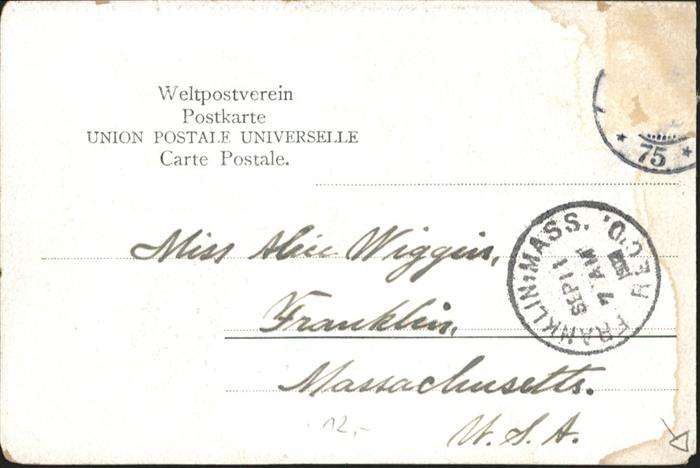 Weltpostverein
Postkarte
UNION POSTALE UNIVERSELLE
Carte Postale.
* 75 *
FRANKLIN, MASS. REC'D.
SEP 11
7 AM
Miss Alice Wiggin,
Franklin,
Massachusetts.
U.S.A.
12,-